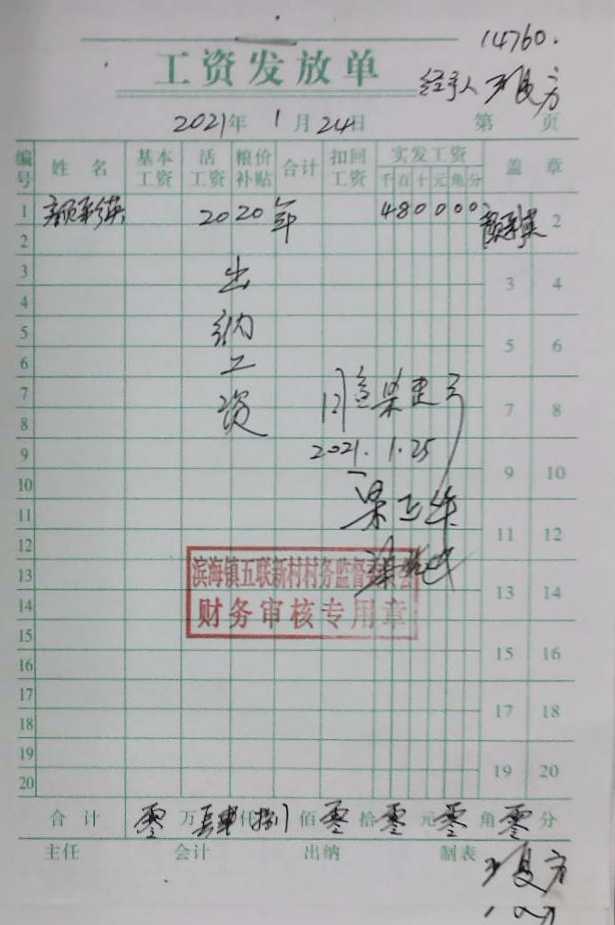 14760.
工资发放单
经手人
2021年 1月24日 第 页
编号 姓名 基本工资 活工资 粮价补贴 合计 扣回工资 实发工资 盖章
千百十元角分
1 2020年 480000 2
2
3 出 3 4
4
5 纳 5 6
6 工
7 资 同意 7 8
8
9 2021.1.25 9 10
10
11 11 12
12
13 滨海镇五联新村村务监督委员会 13 14
14 财务审核专用章
15 15 16
16
17 17 18
18
19 19 20
20
合计 零万 仟捌佰零拾零元零角零分
主任 会计 出纳 制表